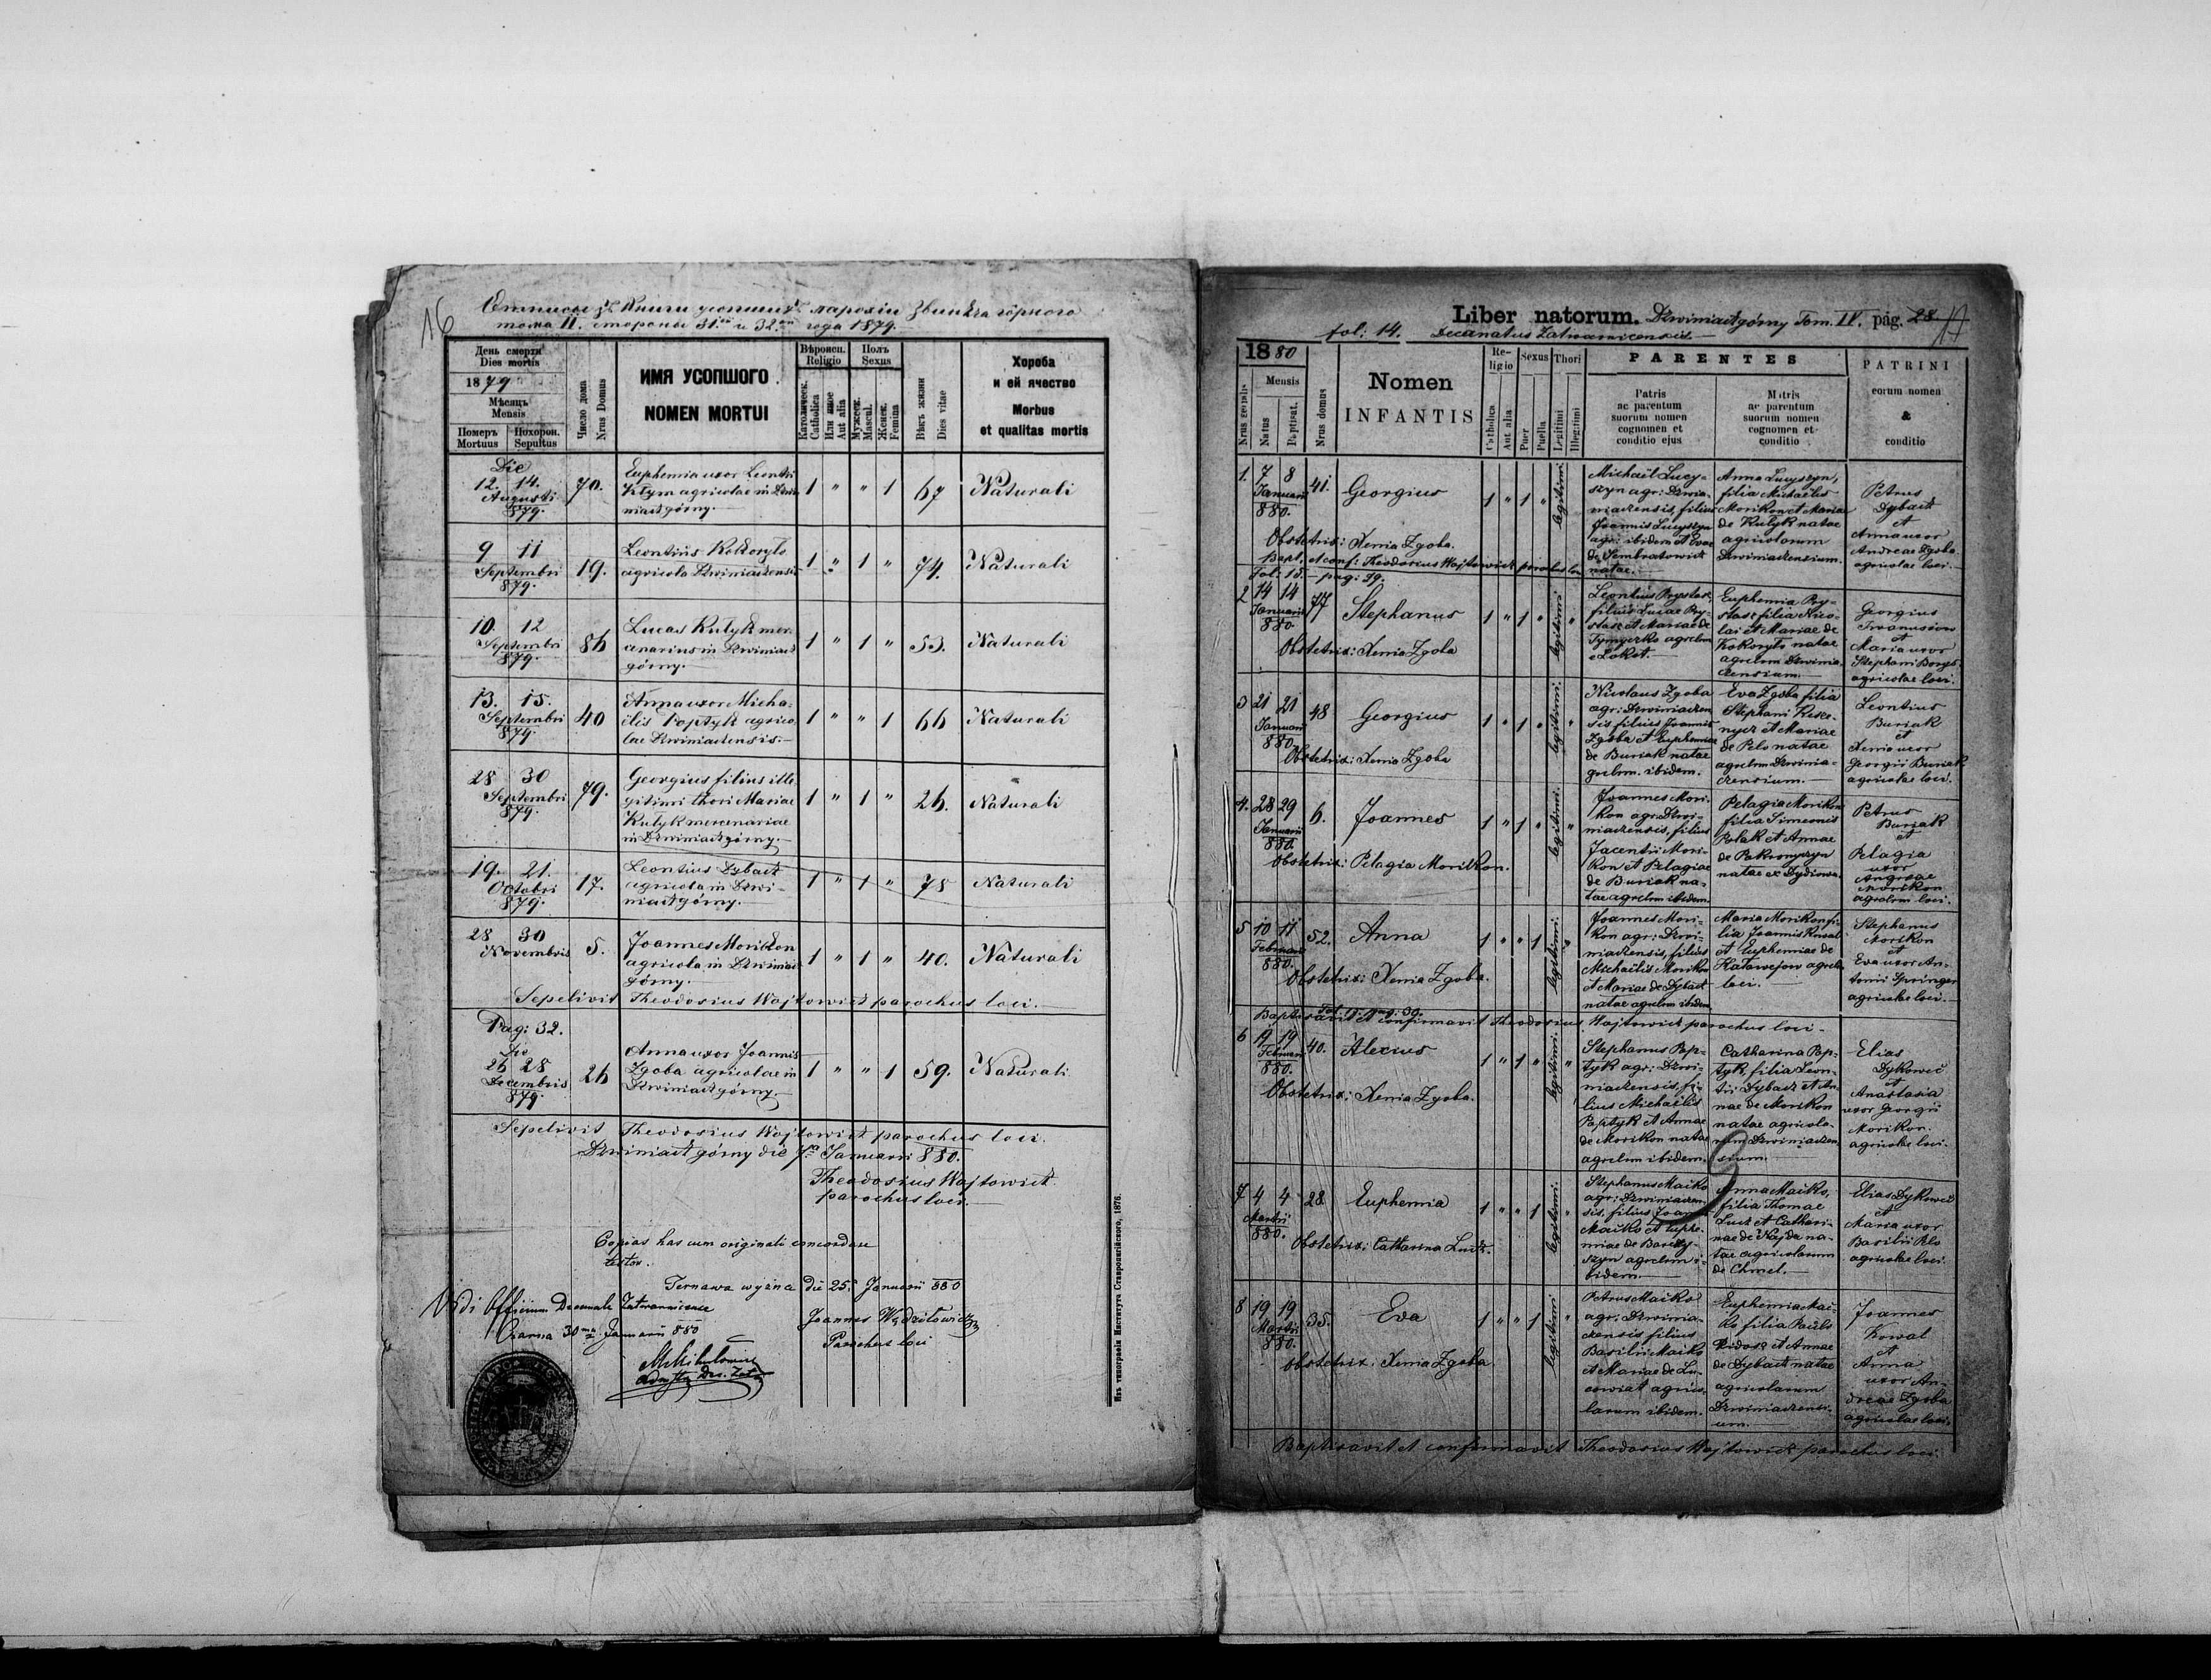 16
Отписы зъ Книги усопшихъ парохіи Звиняча горного
тома II. стороны 31. и 32. года 1879.
День смерти
Dies mortis
1879
Мѣсяць
Mensis
Померъ
Mortuus
Похорон.
Sepultus
Число дома
Nrus Domus
ИМЯ УСОПШОГО
NOMEN MORTUI
Вѣроисп.
Religio
Католическ.
Catholica
Или иное
Aut alia
Полъ
Sexus
Мужеск.
Mascul.
Женск.
Femina
Вѣкъ жизни
Dies vitae
Хороба
и ей ячество
Morbus
et qualitas mortis
Die
12. 14.
Augusti
879.
70.
Euphemia uxor Leontii
Kłym agricolae in Dzwi-
niacz górny.
1 " " 1 67 Naturali
9 11
Septembri
879.
19.
Leontius Kokoryło
agricola Dzwiniacensis
1 " 1 " 74. Naturali
10 12
Septembri
879.
86
Lucas Kulyk mer-
cenarius in Dzwiniacz
górny.
1 " 1 " 53. Naturali
13. 15.
Septembri
879.
40
Anna uxor Micha-
elis Poptyk agrico-
lae Dzwiniacensis.
1 " " 1 66 Naturali
28 30
Septembri
879.
79.
Georgius filius ille-
gitimi thori Mariae
Kulyk mercenariae
in Dzwiniacz górny.
1 " 1 " 26. Naturali
19. 21.
Octobri
879.
17.
Leontius Dybacz
agricola in Dzwi-
niacz górny.
1 " 1 " 78 Naturali
28 30
Novembris
5.
Joannes Morikon
agricola in Dzwiniacz
górny.
1 " 1 " 40. Naturali
Sepelivit Theodosius Wojtowicz parochus loci.
Pag: 32.
Die
26 28
Decembris
879.
26
Anna uxor Joannis
Zgoba agricolae in
Dzwiniacz górny.
1 " " 1 59. Naturali
Sepelivit Theodosius Wojtowicz parochus loci.
Dzwiniacz górny die Januarii 880.
Theodosius Wojtowicz
parochus loci.
Copias has cum originali concordare
testor.
Ternawa wyżna die 25. Januarii 880
Joannes
Parochus loci
Vidi Officium Decanale Zatwarnicense
Czarna 30 Januarii 880
Изъ типографіи Института Ставропигійского, 1876.
Liber natorum. Dzwiniacz górny Tom. IV. pág. 28
17
fol: 14. Decanatus Zatwarnicensis
1880
Nrus serialis
Mensis
Natus
Baptisat.
Nrus domus
Nomen
INFANTIS
Re-
ligio
Catholica
Aut alia
Sexus
Puer
Puella
Thori
Legitimi
Illegitimi
PARENTES
Patris
ac parentum
suorum nomen
cognomen et
conditio ejus
Matris
ac parentum
suorum nomen
cognomen et
conditio
PATRINI
eorum nomen
&
conditio
1. 7 8
Januarii
880.
41. Georgius 1 " 1 " legitimi
Michaël Lucy-
szyn agr: Dzwi-
niacensis, filius
Joannis Lucyszyn
agr: ibidem et Evae
de Sembratowicz
natae.
Anna Lucyszyn,
filia Michaëlis
Morikon et Mariae
de Kulyk natae
agricolarum
Dzwiniacensium.
Petrus
Dybacz
et
Anna uxor
Andreae Zgoba
agricolae loci.
Obstetrix: Xenia Zgoba.
Bapt. et conf: Theodosius Wojtowicz parochus loci
Fol: 15. pag: 29.
2 14 14
Januarii
880.
77 Stephanus 1 " 1 " legitimi "
Leontius Prystasz,
filius Lucae Pry-
stasz et Mariae de
Tymyczko agrclrm
e Łokoć.
Euphemia Pry-
stasz filia Nico-
lai et Mariae de
Kokoryło natae
agrclrm Dzwinia-
censium.
Georgius
Iwanusiów
et
Maria uxor
Stephani Borys
agricolae loci.
Obstetrix: Xenia Zgoba
3 21 21
Januarii
880.
48 Georgius 1 " 1 " legitimi "
Nicolaus Zgoba
agr: Dzwiniacen-
sis, filius Joannis
Zgoba et Euphemiae
de Buriak natae
grclrm. ibidem.
Eva Zgoba filia
Stephani
et Mariae
de Pelo natae
agrclrm Dzwinia-
censium.
Leontius
Buriak
et
Xenia uxor
Georgii Buriak
agricolae loci.
Obstetrix: Xenia Zgoba
4. 28 29
Januarii
880.
6. Joannes 1 " 1 " legitimi "
Joannes Mori-
kon agr: Dzwi-
niacensis, filius
Jacentii Mori-
kon et Pelagiae
de Buriak na-
tae agrclrm ibidem.
Pelagia Morikon
filia Simeonis
Polak et Annae
de
natae ex Dydiowa.
Petrus
Buriak
et
Pelagia
uxor
Andreae
Morikon
agrclrm loci.
Obstetrix: Pelagia Morikon.
5 10 11
Februarii
880.
52. Anna 1 " " 1 legitimi "
Joannes Mori-
kon agr: Dzwi-
niacensis, filius
Michaëlis Morikon
et Mariae de Dybacz
natae agrclrm ibidem
Maria Morikon fi-
lia Joannis
et Euphemiae de
agrclrm
loci.
Stephanus
Morikon
et
Eva uxor An-
tonii Springer
agricolae loci.
Obstetrix: Xenia Zgoba.
Baptisavit et confirmavit Theodosius Wojtowicz parochus loci.
6 19 19
Februarii
880.
40. Alexius 1 " 1 " legitimi "
Stephanus Pop-
tyk agr: Dzwi-
niacensis, fi-
lius Michaëlis
Poptyk et Annae
de Morikon natae
agrclrm ibidem.
Catharina Pop-
tyk, filia Leon-
tii Dybacz et An-
nae de Morikon
natae agricola-
rum Dzwiniacen-
sium.
Elias
Dykoweć
et
Anastasia
uxor Georgii
Morikon
agricolae loci.
Obstetrix: Xenia Zgoba.
7 4 4
Martii
880.
28. Euphemia 1 " " 1 legitimi "
Stephanus Maiko
agr: Dzwiniacen-
sis, filius Joannis
Maiko et Euphe-
miae de
agrclrm i-
bidem.
Anna Maiko,
filia Thomae
Łucz et Cathari-
nae de Hajda na-
tae agricolarum
de Chmel.
Elias Dykoweć
et
Maria uxor
Basilii Pelo
agricolae loci.
Obstetrix: Catharina
8 19 19
Martii
880.
35. Eva 1 " " 1 legitimi "
Petrus Maiko
agr: Dzwinia-
censis filius
Basilii Maiko
et Mariae de
agrico-
larum ibidem.
Euphemia Mai-
ko filia Pauli
et Annae
de Dybacz natae
agricolarum
Dzwiniacensi-
um.
Joannes
Kowal
et
Anna
uxor An-
dreae Zgoba
agricolae loci.
Obstetrix: Xenia Zgoba
Baptisavit et confirmavit Theodosius Wojtowicz parochus loci.